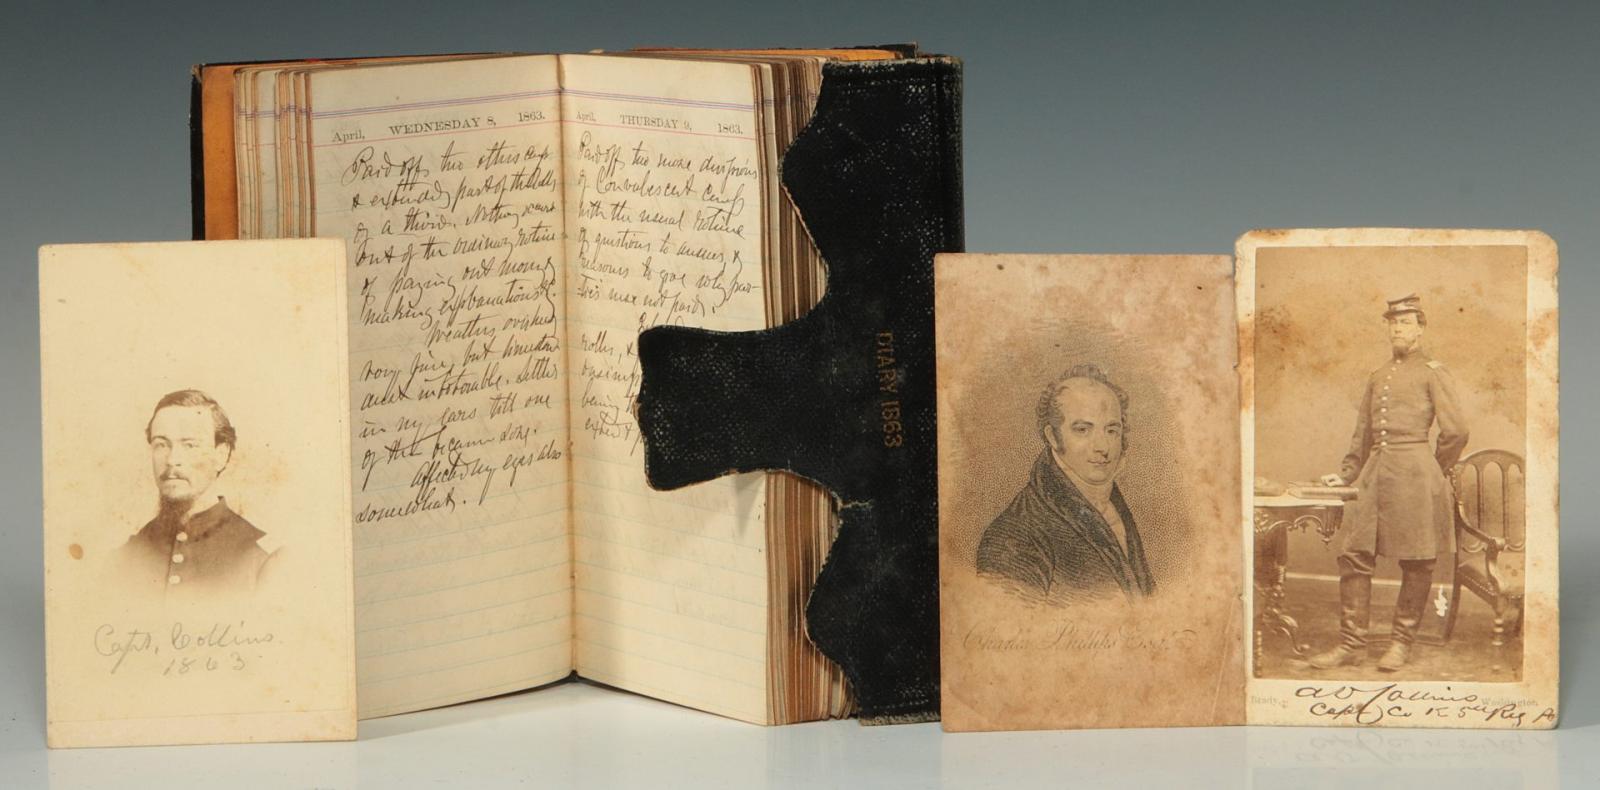 April, WEDNESDAY 8, 1863.
Paid off two others camp
& extended part of the Rolls
of a third. Nothing occurs
out of the ordinary routine
of paying out money
making explanations &c.
Weather overhead
very fine, but
most intolerable. Settles
in my ears till one
of them became sore.
Affected my eyes also
somewhat.
April, THURSDAY 9, 1863.
Paid off two more divisions
of Convalescent Camp
with the usual routine
of questions to answer, &
reasons to give why par-
ties were not paid.
rolls, &
being
DIARY 1863
Capt. Collins.
1863
Charles Phillips Esqr.
Brady. Washington.
Collins
Capt Co K 5th Reg